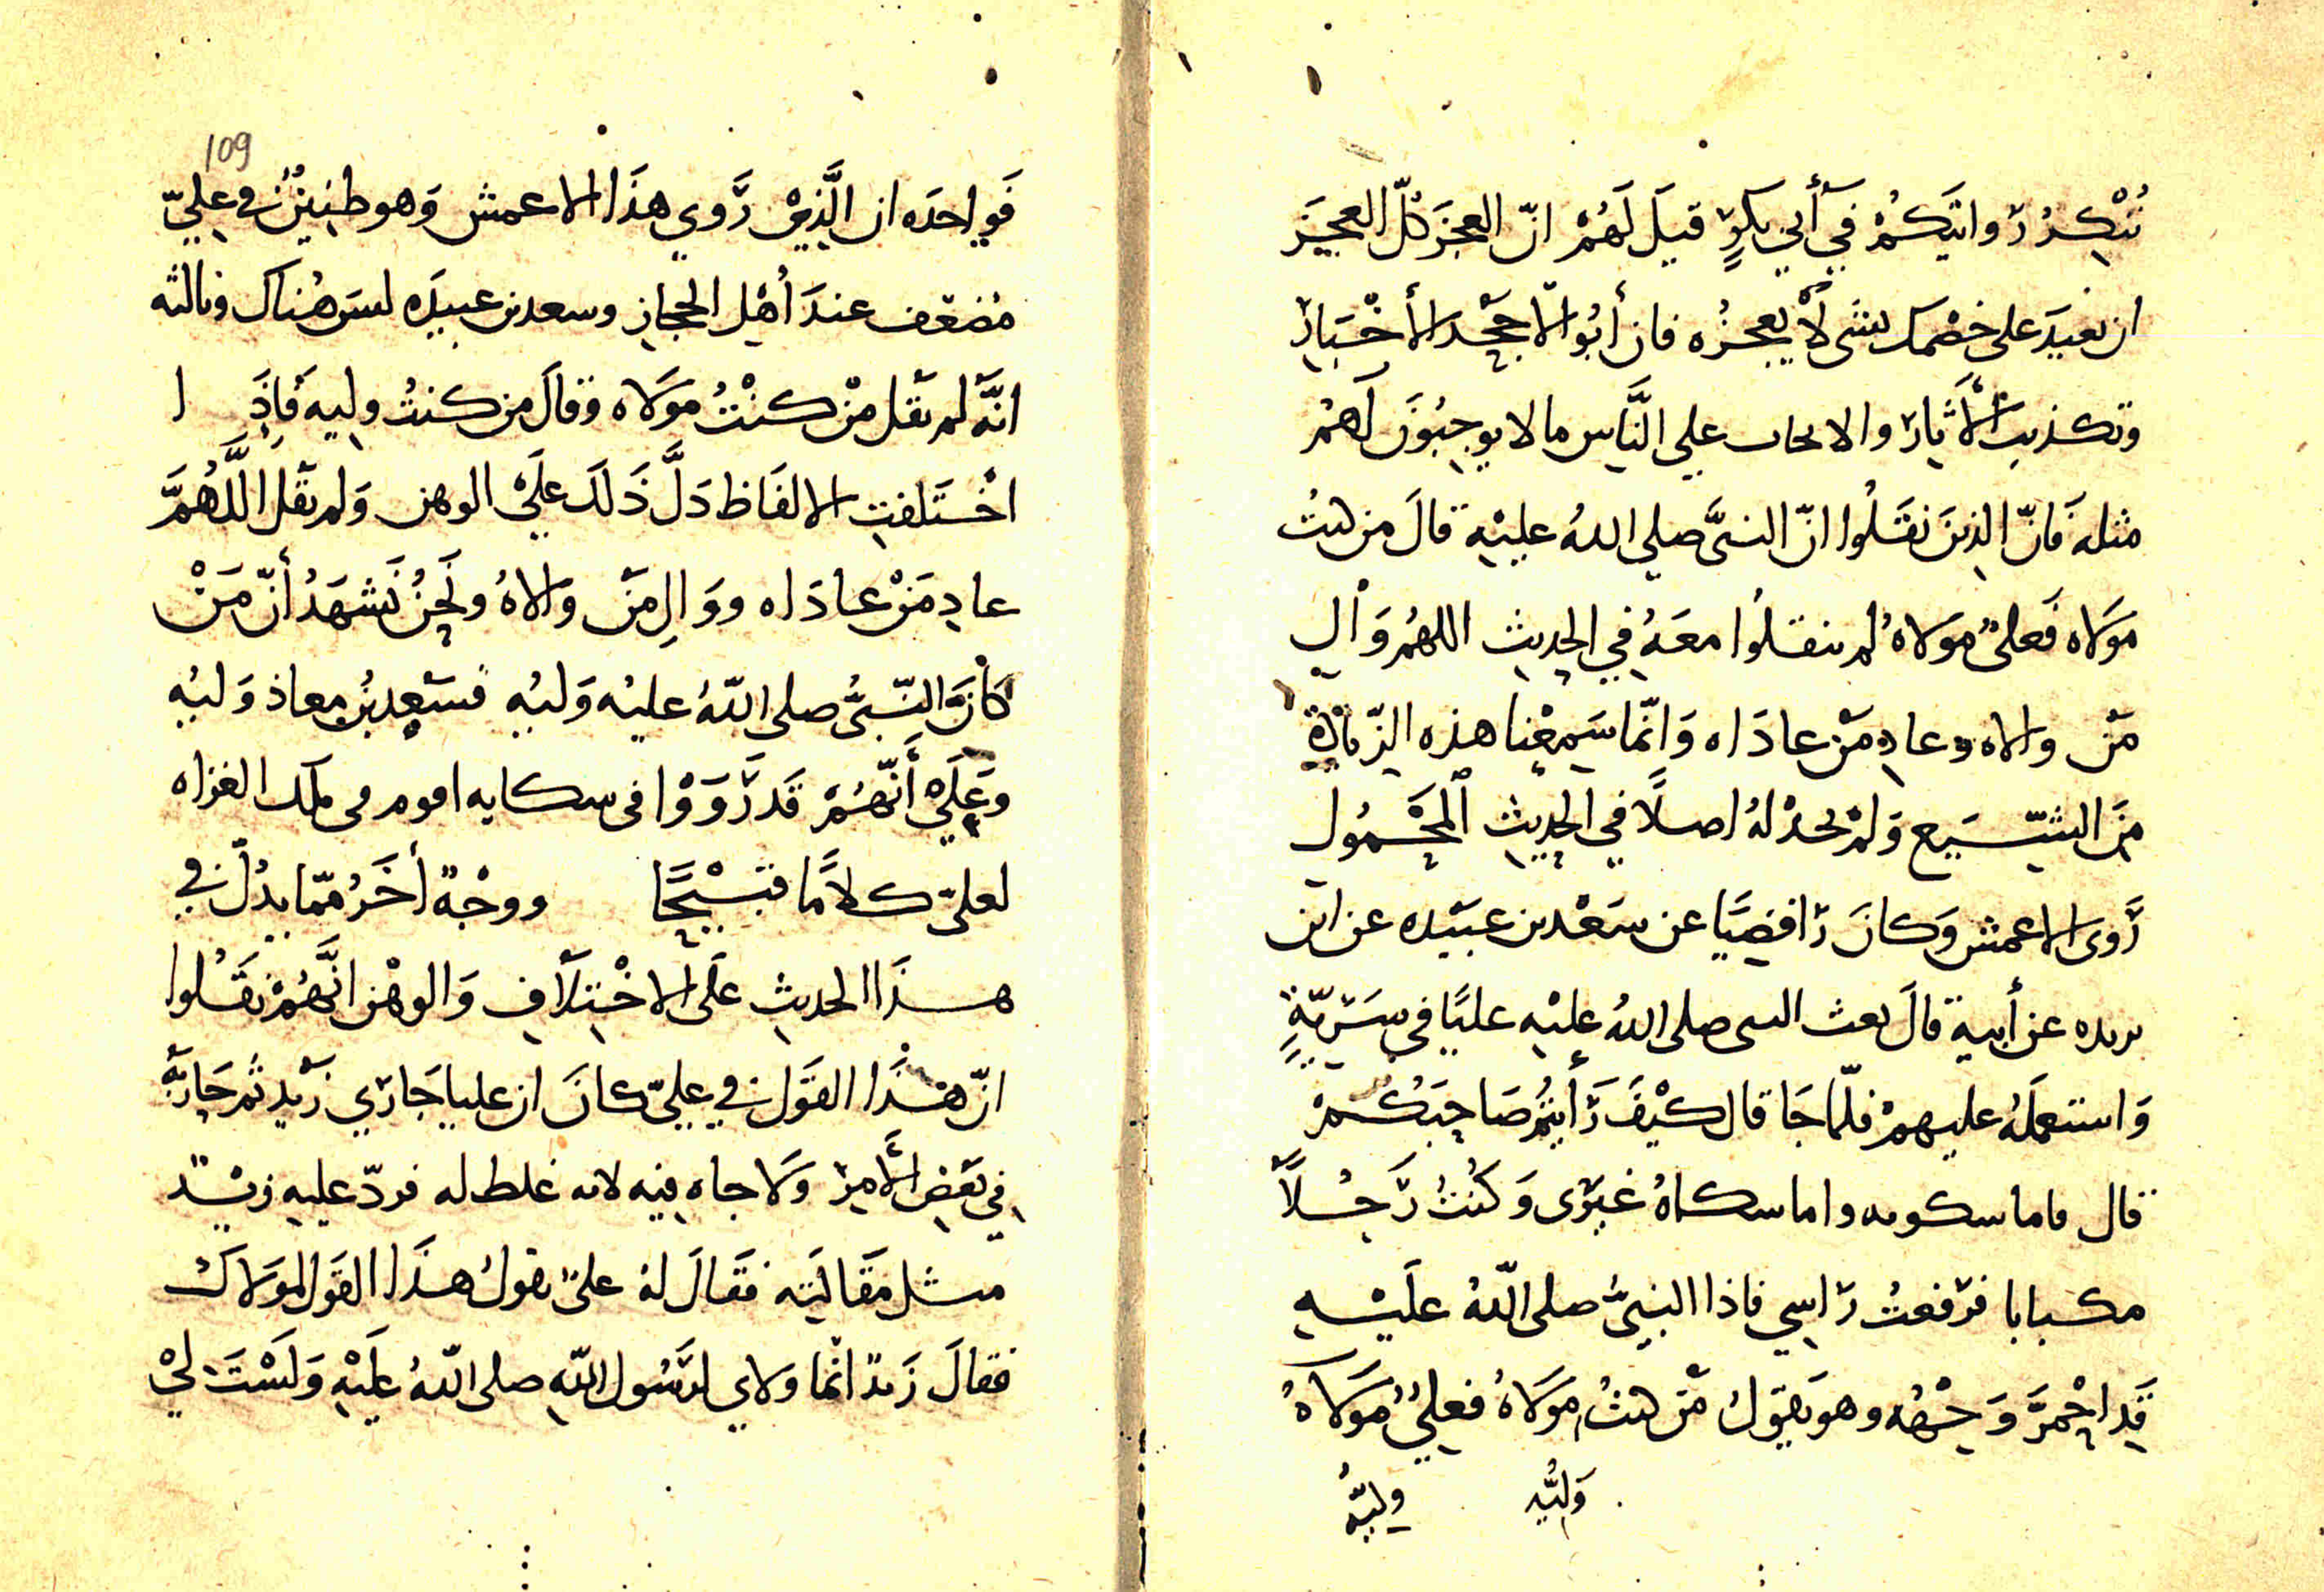 تُنْكِرُ رَوايتكُمْ في أَبي بكرٍ قيلَ لَهُمْ انّ العجزَ كلّ العجزِ
ان تعيدَ على خصْمك بشى لاْ يعجزُه فان أبُوا الّا جحْد الأخْبَار
وتكذيبَ الأثَار والايجاب علي النَّاس ما لا يوجبُونَ لَهمُ
مثله فَانّ الذينَ نقَلُوا انّ النبيَّ صلي اللهُ عليْه قالَ من كنتُ
مَولاه فَعلىٌّ مَولاهُ لم ينقلُوا معَهُ في الحديث اللهُم وَال
مَن والاه وعادِ مَن عادَاه وَانّما سَمِعْنا هذه الزّيادة
مِنَ الشّيَع وَلمْ نجدْ لهُ اصلًا في الحديث المحْمُول
رَوى الاعمش وَكانَ رَافضيًّا عن سَعْد بن عبَيْده عن ابن
بريده عن أبيه قالَ بعث النبى صلى اللهُ عليْه عليًا فى سَريّةٍ
وَاستعملَهُ عليهمْ فلّما جَا قال كيْفَ رَأَيتُم صَاحبَكُمْ
قال فاما شكوته واما شكاهُ غيْرى وَكُنتُ رَجُلًا
مكبابا فرَفعتُ رَاسِي فاذا النبيُّ صلى اللّهُ علَيْهِ
قَد احْمرَّ وَجْهُه وهو يقولُ مَن كنتُ مَولَاهُ فعليٌّ مَولَاهُ
وَليُّه وليُّه
109
فَواحدَه ان الَّذِيْ رَوي هذَا الاعمش وَهو ظنينٌ في عليّ
مُضعّف عندَ أهْل الحجاز وسعد بن عبيدَه ليسَ هُناك وثالثه
انّهَ لم يقل منْ كنْتُ مَولَاه وقالَ من كنتُ وليه فَاذَا
اخْتَلفتِ الالفَاظ دَلَّ ذَلكَ علَيْ الوهن وَلم يقل اللَّهُمَّ
عادِ مَنْ عادَاه ووَالِ مَن وَالاهُ ونَحنُ نَشهَدُ أنّ مَنْ
كَانَ النّبيُّ صلى اللّهُ عليْه وَليُه فسَعدُ بنُ معاذ وَليُه
وَعلَيْ أَنّهُمْ قَد رَوَوْا فى شكايه اقوم فى تلك الغزاه
لعلىّ كلاَمًا قبيْحًا ووجْهٌ أخَرُ ممّا يدُلّ في
هذَا الحديثِ عَلى الاخْتِلَافِ وَالوهْن انَّهُمْ نقَلُوا
انّ هَذَا القَول في عليّ كانَ ان عليا جَارَي زَيد ثم جَارَيه
في بَعضِ الأَمرْ وَلَا جاه فيه لانه غلط له فردّ عليهِ زيْد
مثل مقَالَتِه فقَالَ لهُ علىٌّ تقولُ هذَا القَول لمَولَاكَ
فقالَ زَيدٌ انّما وَلاي لرَسُول اللّهِ صلى اللّهُ عليْهِ وَلَسْتَ ليْ